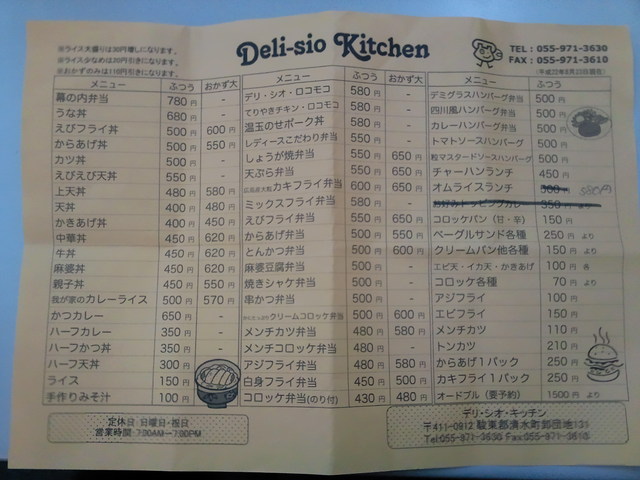 ※ライス大盛りは30円増しになります。
※ライス少なめは20円引きになります。
※おかずのみは110円引きになります。
Deli-sio Kitchen
TEL : 055-971-3630
FAX : 055-971-3610
メニュー ふつう おかず大
幕の内弁当 780円 -
うな丼 680円 -
えびフライ丼 500円 600円
からあげ丼 500円 550円
カツ丼 500円 -
えびえび天丼 550円 -
上天丼 480円 580円
天丼 400円 480円
かきあげ丼 400円 450円
中華丼 450円 620円
牛丼 450円 620円
麻婆丼 450円 620円
親子丼 450円 550円
我が家のカレーライス 500円 570円
かつカレー 650円 -
ハーフカレー 350円 -
ハーフかつ丼 350円 -
ハーフ天丼 300円
ライス 150円
手作りみそ汁 100円
メニュー ふつう おかず大
デリ・シオ・ロコモコ 580円 -
てりやきチキン・ロコモコ 580円 -
温玉のせポーク丼 580円 -
レディースこだわり弁当 550円 -
しょうが焼弁当 550円 650円
天ぷら弁当 550円 -
カキフライ弁当 600円 650円
ミックスフライ弁当 580円 -
えびフライ弁当 550円 650円
からあげ弁当 500円 550円
とんかつ弁当 500円 600円
麻婆豆腐弁当 500円 -
焼きシャケ弁当 550円 -
串かつ弁当 500円 -
クリームコロッケ弁当 500円 600円
メンチカツ弁当 480円 580円
メンチコロッケ弁当 480円 -
アジフライ弁当 480円 580円
白身フライ弁当 450円 500円
コロッケ弁当(のり付) 430円 480円
メニュー ふつう
デミグラスハンバーグ弁当 500円
四川風ハンバーグ弁当 500円
カレーハンバーグ弁当 500円
トマトソースハンバーグ 500円
粒マスタードソースハンバーグ 500円
チャーハンランチ 450円
オムライスランチ 300円 580円
お好みトッピングカレー 350円 より
コロッケパン（甘・辛） 150円
ベーグルサンド各種 250円 より
クリームパン他各種 150円 より
エビ天・イカ天・かきあげ 100円 各
コロッケ各種 70円 より
アジフライ 100円
エビフライ 150円
メンチカツ 110円
トンカツ 210円
からあげ1パック 250円
カキフライ1パック 250円
オードブル（要予約） 1500円 より
定休日 日曜日・祝日
営業時間 7:00AM～7:00PM
デリ・シオ・キッチン
〒411-0912 駿東郡清水町卸団地131
Tel:055-971-3630 Fax:055-971-3610